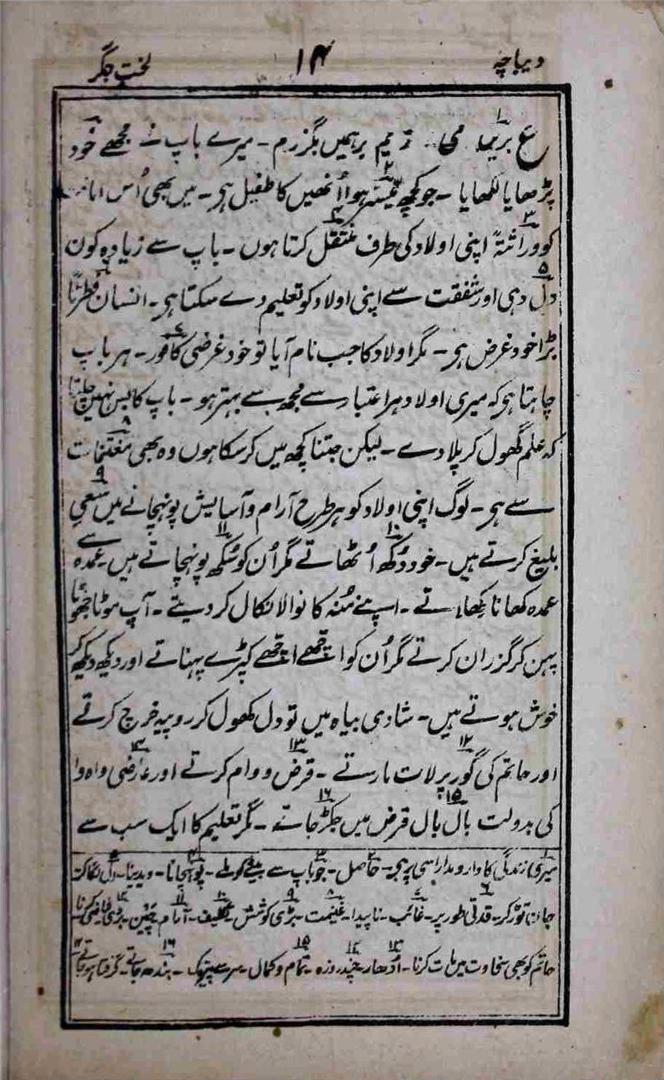 دیباچہ ۱۴ لختِ جگر
ع بریں می زیم برہمیں بگزرم۔ میرے باپ نے مجھے خود
پڑھایا لکھایا۔ جو کچھ میسر ہوا اُنھیں کا طفیل ہی۔ میں بھی اُس امانت
کو وراثتہً اپنی اولاد کی طرف منتقل کرتا ہوں۔ باپ سے زیادہ کون
دل دہی اور شفقت سے اپنی اولاد کو تعلیم دے سکتا ہی۔ انسان فطرتاً
بڑا خود غرض ہی۔ مگر اولاد کا جب نام آیا تو خود غرضی کافور۔ ہر باپ
چاہتا ہی کہ میری اولاد ہر اعتبار سے مجھ سے بہتر ہو۔ باپ کا بس نہیں چلتا
کہ علم گھول کر پلا دے۔ لیکن جتنا کچھ میں کر سکا ہوں وہ بھی مغتنمات
سے ہی۔ لوگ اپنی اولاد کو ہر طرح آرام و آسایش پونہچانے میں سعیِ
بلیغ کرتے ہیں۔ خود دُکھ اُٹھاتے مگر اُن کو سُکھ پونہچاتے ہیں عمدہ سے
عمدہ کھانا کھلاتے۔ اپنے مُنہ کا نوالا نکال کر دیتے۔ آپ موٹا جھوٹا
پہن کر گزران کرتے مگر اُن کو اچھے اچھے کپڑے پہناتے اور دیکھ دیکھ کر
خوش ہوتے ہیں۔ شادی بیاہ میں تو دل کھول کر روپیہ خرچ کرتے
اور حاتم کی گور پر لات مارتے۔ قرض و وام کرتے اور عارضی واہ وا
کی بدولت بال بال قرض میں جکڑ جاتے۔ مگر تعلیم کا ایک سب سے
۱ میری زندگی کا دار و مدار اسی پر ہی۔ ۲ حاصل۔ ۳ جو باپ سے بیٹے کو ملے۔ ۴ پونہچانا۔ دیدینا۔ ۵ دل لگا کر
جان توڑ کر۔ ۶ قدرتی طور پر۔ ۷ غائب۔ ناپیدا۔ ۸ غنیمت۔ ۹ بڑی کوشش ۱۰ تکلیف۔ ۱۱ آرام چین۔ ۱۲ بڑی فیاضی کرنا
حاتم کو بھی سخاوت میں مات کرنا۔ ۱۳ اُدھار۔ ۱۴ چند روزہ۔ ۱۵ تمام و کمال۔ سر سے پیر تک۔ ۱۶ بندھ جاتے۔ گرفتار ہو جاتے